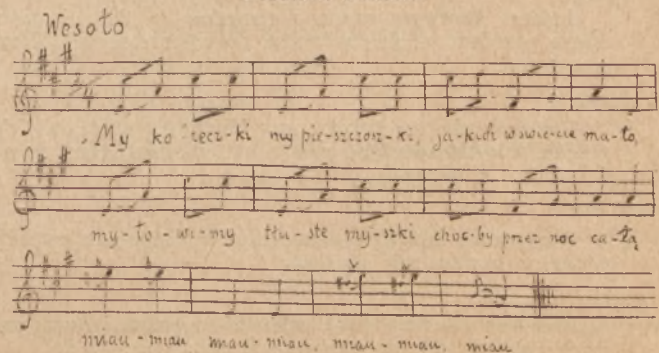 Wesoło
2/4
My ko-tecz-ki my pie-szczosz-ki, ja-kich w świe-cie ma-ło,
my-ło-wi-my tłu-ste my-szki choć-by przez noc ca-łą
miau-miau miau-miau, miau-miau, miau